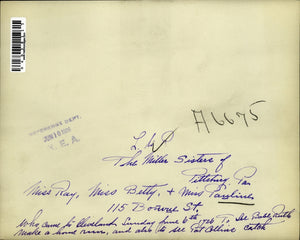 REFERENCE DEPT.
JUN 10 1926
N. E. A.
A6675
L to R
The Miller Sisters of
Pittsburg Pa
Miss Ray, Miss Betty, + Miss Pauline
115 St
Who came to Cleveland Sunday June 6th 1926 To See Babe Ruth
make a home run, and also to see Pat Collins Catch